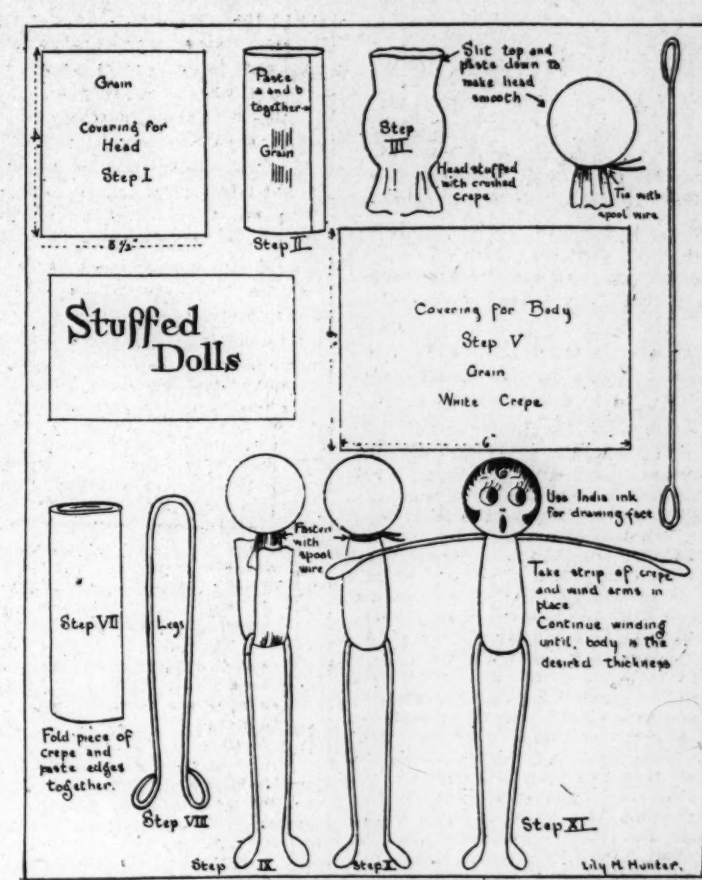 Grain
Covering for
Head
Step I
5½"
Paste
a and b
together
Grain
Step II
Step
III
Head stuffed
with crushed
crepe
Slit top and
paste down to
make head
smooth
Tie with
spool wire
Stuffed
Dolls
Covering for Body
Step V
Grain
White Crepe
6"
Step VII
Fold piece of
crepe and
paste edges
together.
Legs
Step VIII
Fasten
with
spool
wire
Step IX
Step X
Use India ink
for drawing face
Take strip of crepe
and wind arms in
place
Continue winding
until body is the
desired thickness
Step XI
Lily H. Hunter.